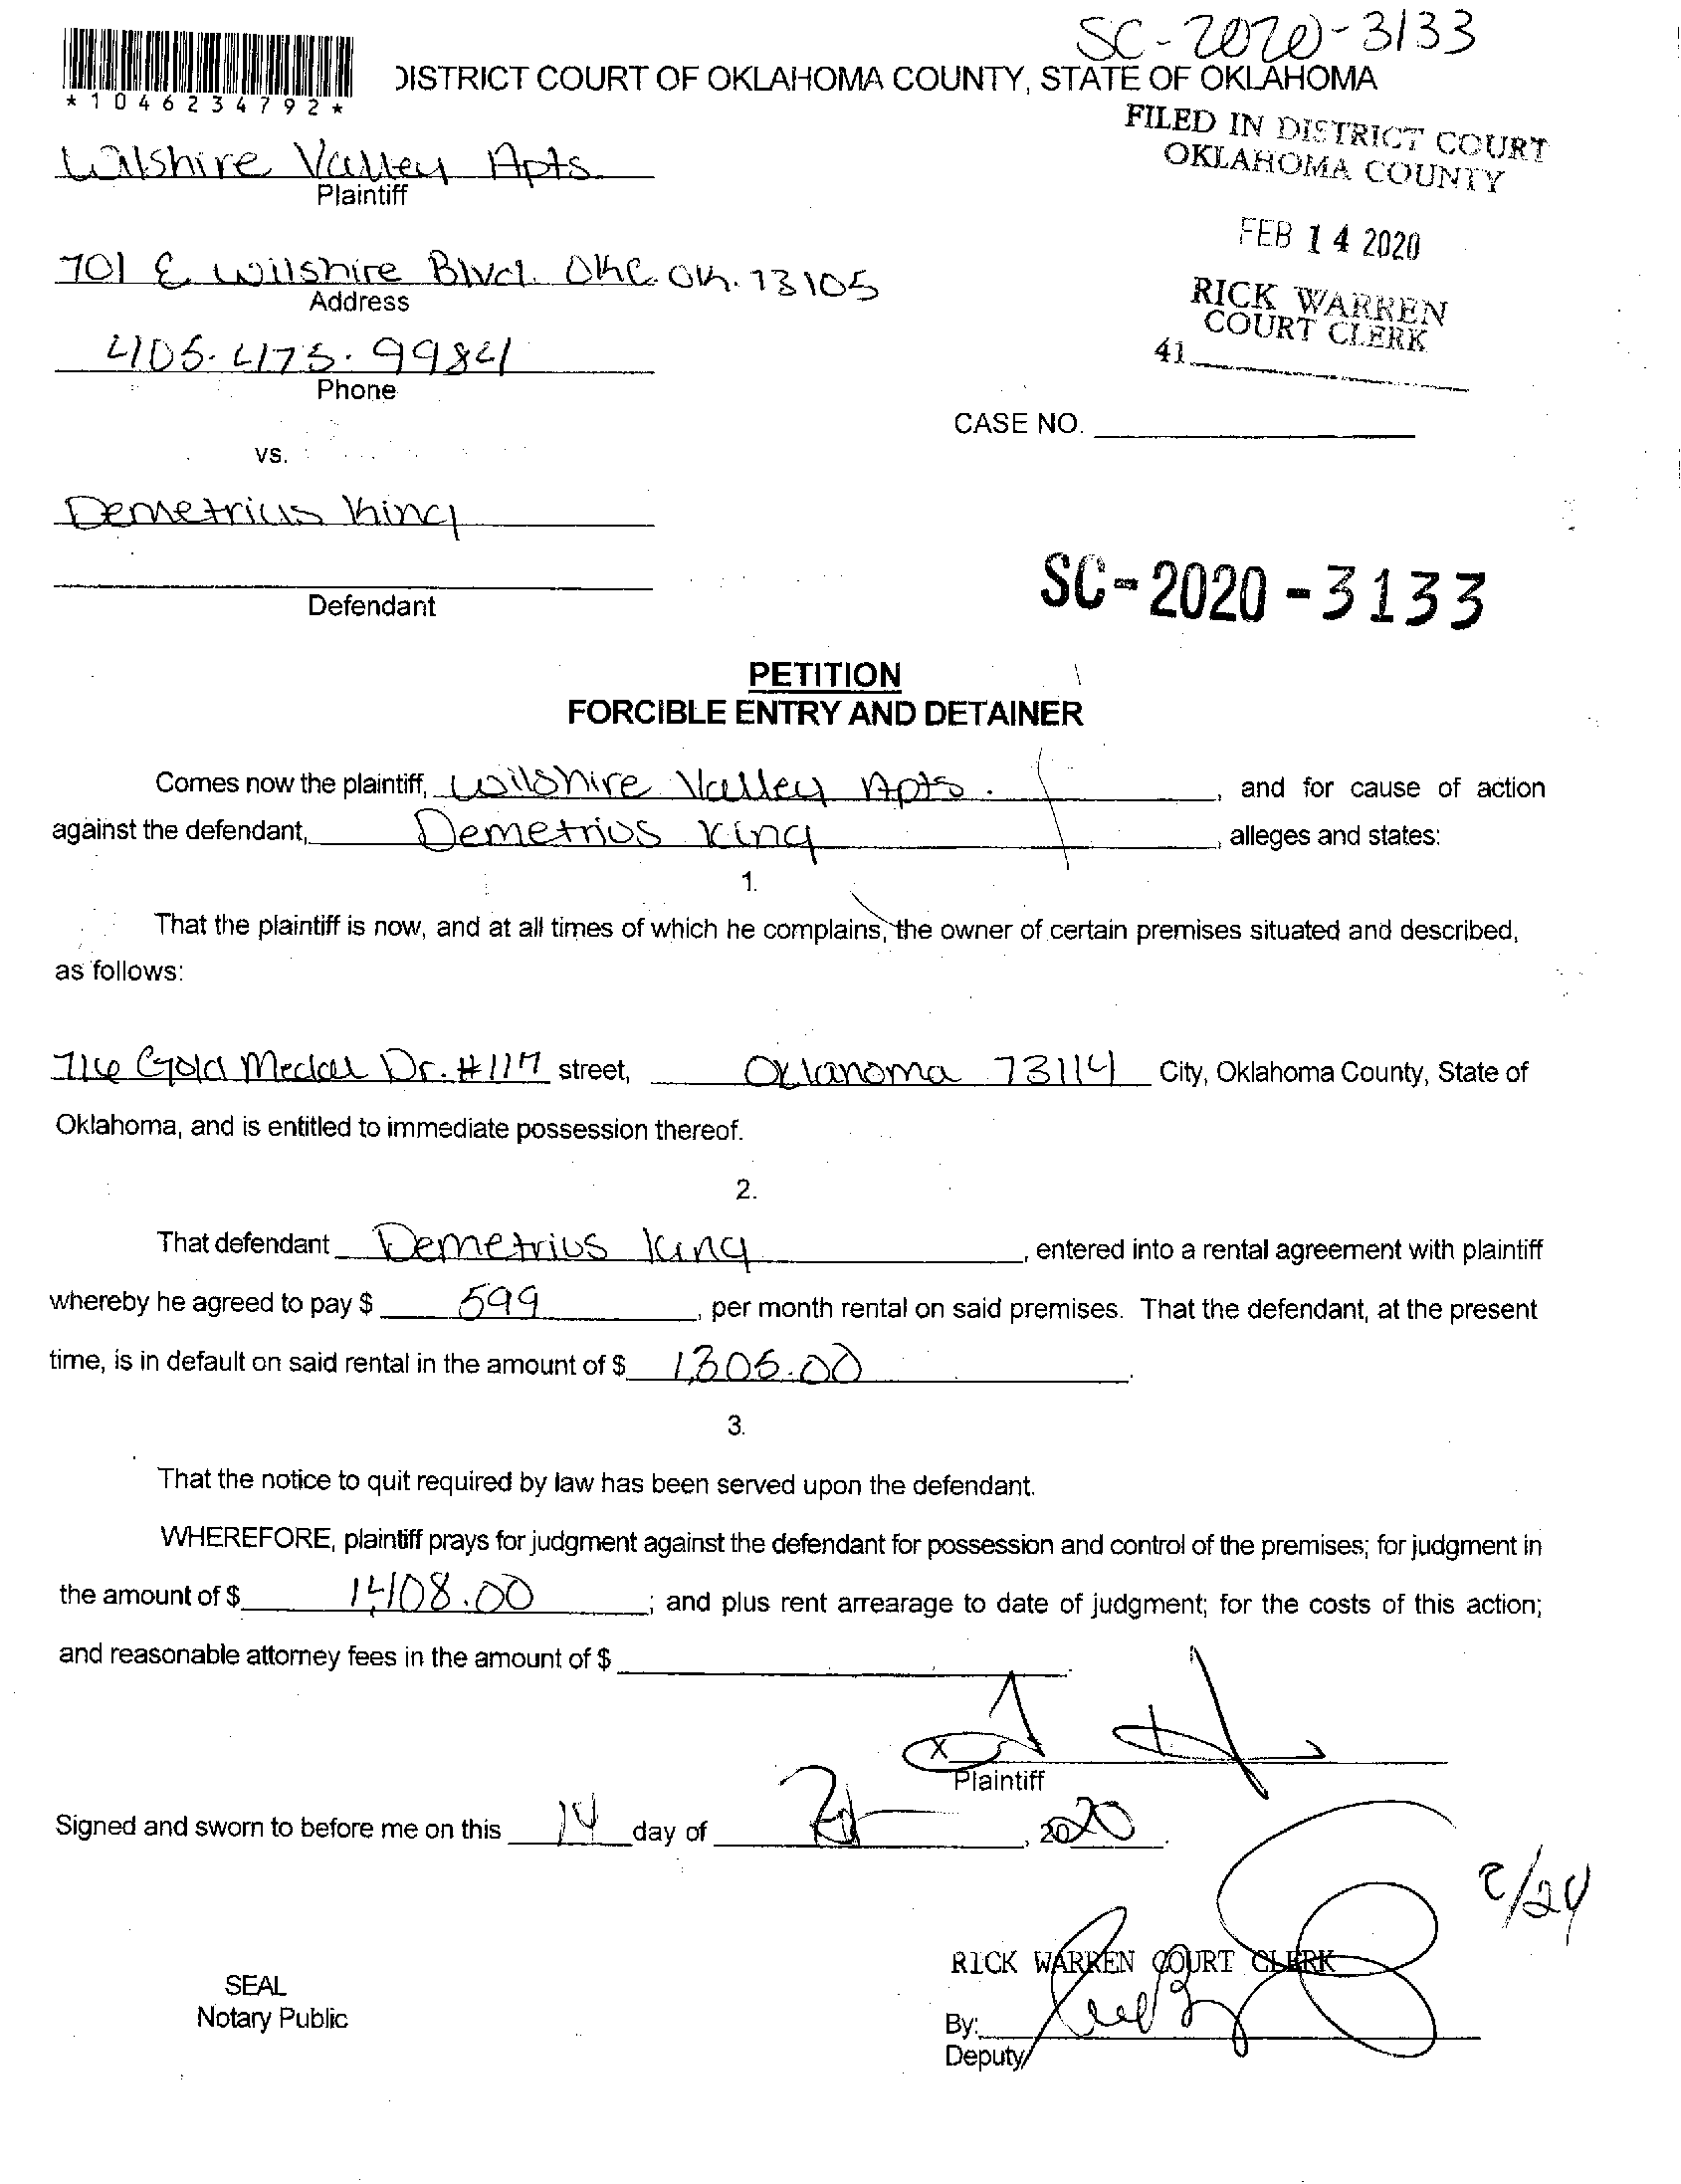 SC-2020-3133
*1046234792*
DISTRICT COURT OF OKLAHOMA COUNTY, STATE OF OKLAHOMA
FILED IN DISTRICT COURT
OKLAHOMA COUNTY
Wilshire Valley Apts.
Plaintiff
FEB 14 2020
701 E Wilshire Blvd. OKC OK. 73105
Address
RICK WARREN
COURT CLERK
41
405.475.9984
Phone
CASE NO.
vs.
Demetrius King
Defendant
SC-2020-3133
PETITION
FORCIBLE ENTRY AND DETAINER
Comes now the plaintiff, Wilshire Valley Apts. , and for cause of action
against the defendant, Demetrius King , alleges and states:
1.
That the plaintiff is now, and at all times of which he complains, the owner of certain premises situated and described,
as follows:
716 Gold Medal Dr. #117 street, Oklahoma 73114 City, Oklahoma County, State of
Oklahoma, and is entitled to immediate possession thereof.
2.
That defendant Demetrius King , entered into a rental agreement with plaintiff
whereby he agreed to pay $ 599 , per month rental on said premises. That the defendant, at the present
time, is in default on said rental in the amount of $ 1,305.00 .
3.
That the notice to quit required by law has been served upon the defendant.
WHEREFORE, plaintiff prays for judgment against the defendant for possession and control of the premises; for judgment in
the amount of $ 1,408.00 ; and plus rent arrearage to date of judgment; for the costs of this action;
and reasonable attorney fees in the amount of $ .
X
Plaintiff
Signed and sworn to before me on this 14 day of , 2020 .
2/24
RICK WARREN COURT CLERK
SEAL
Notary Public
By:
Deputy